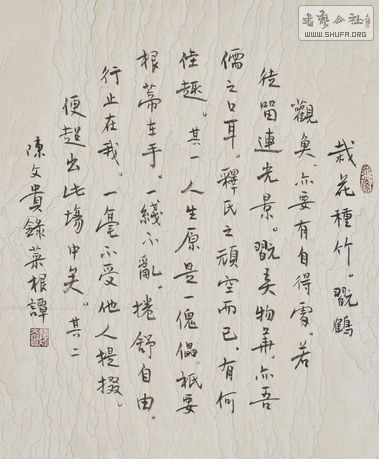 栽花種竹。翫鶴
觀魚。亦要有自得處。若
徒留連光景。翫弄物華。亦吾
儒之口耳。釋氏之頑空而已。有何
佳趣。其一 人生原是一傀儡。祇要
根蒂在手。一綫不亂。捲舒自由。
行止在我。一毫不受他人提掇。
便超出此場中矣。其二
陳文貴錄菜根譚
書藝公社
WWW.SHUFA.ORG